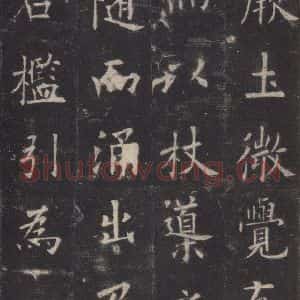 厥土微覺有
而以杖導之
隨而涌出乃
石檻引為
Shufawang.cn